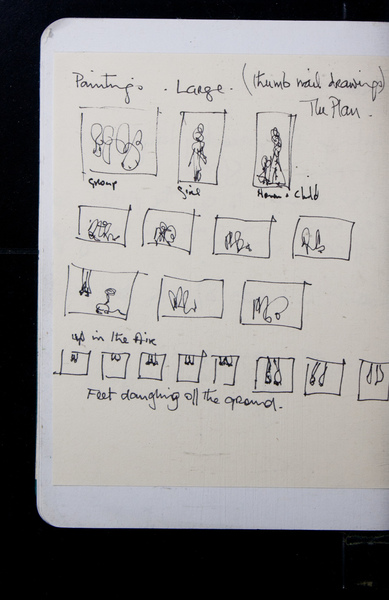 Paintings. Large. (thumb nail drawings)
The Plan.
Group
Girl
Mama + Child
up in the Air
Feet dangling off the ground.